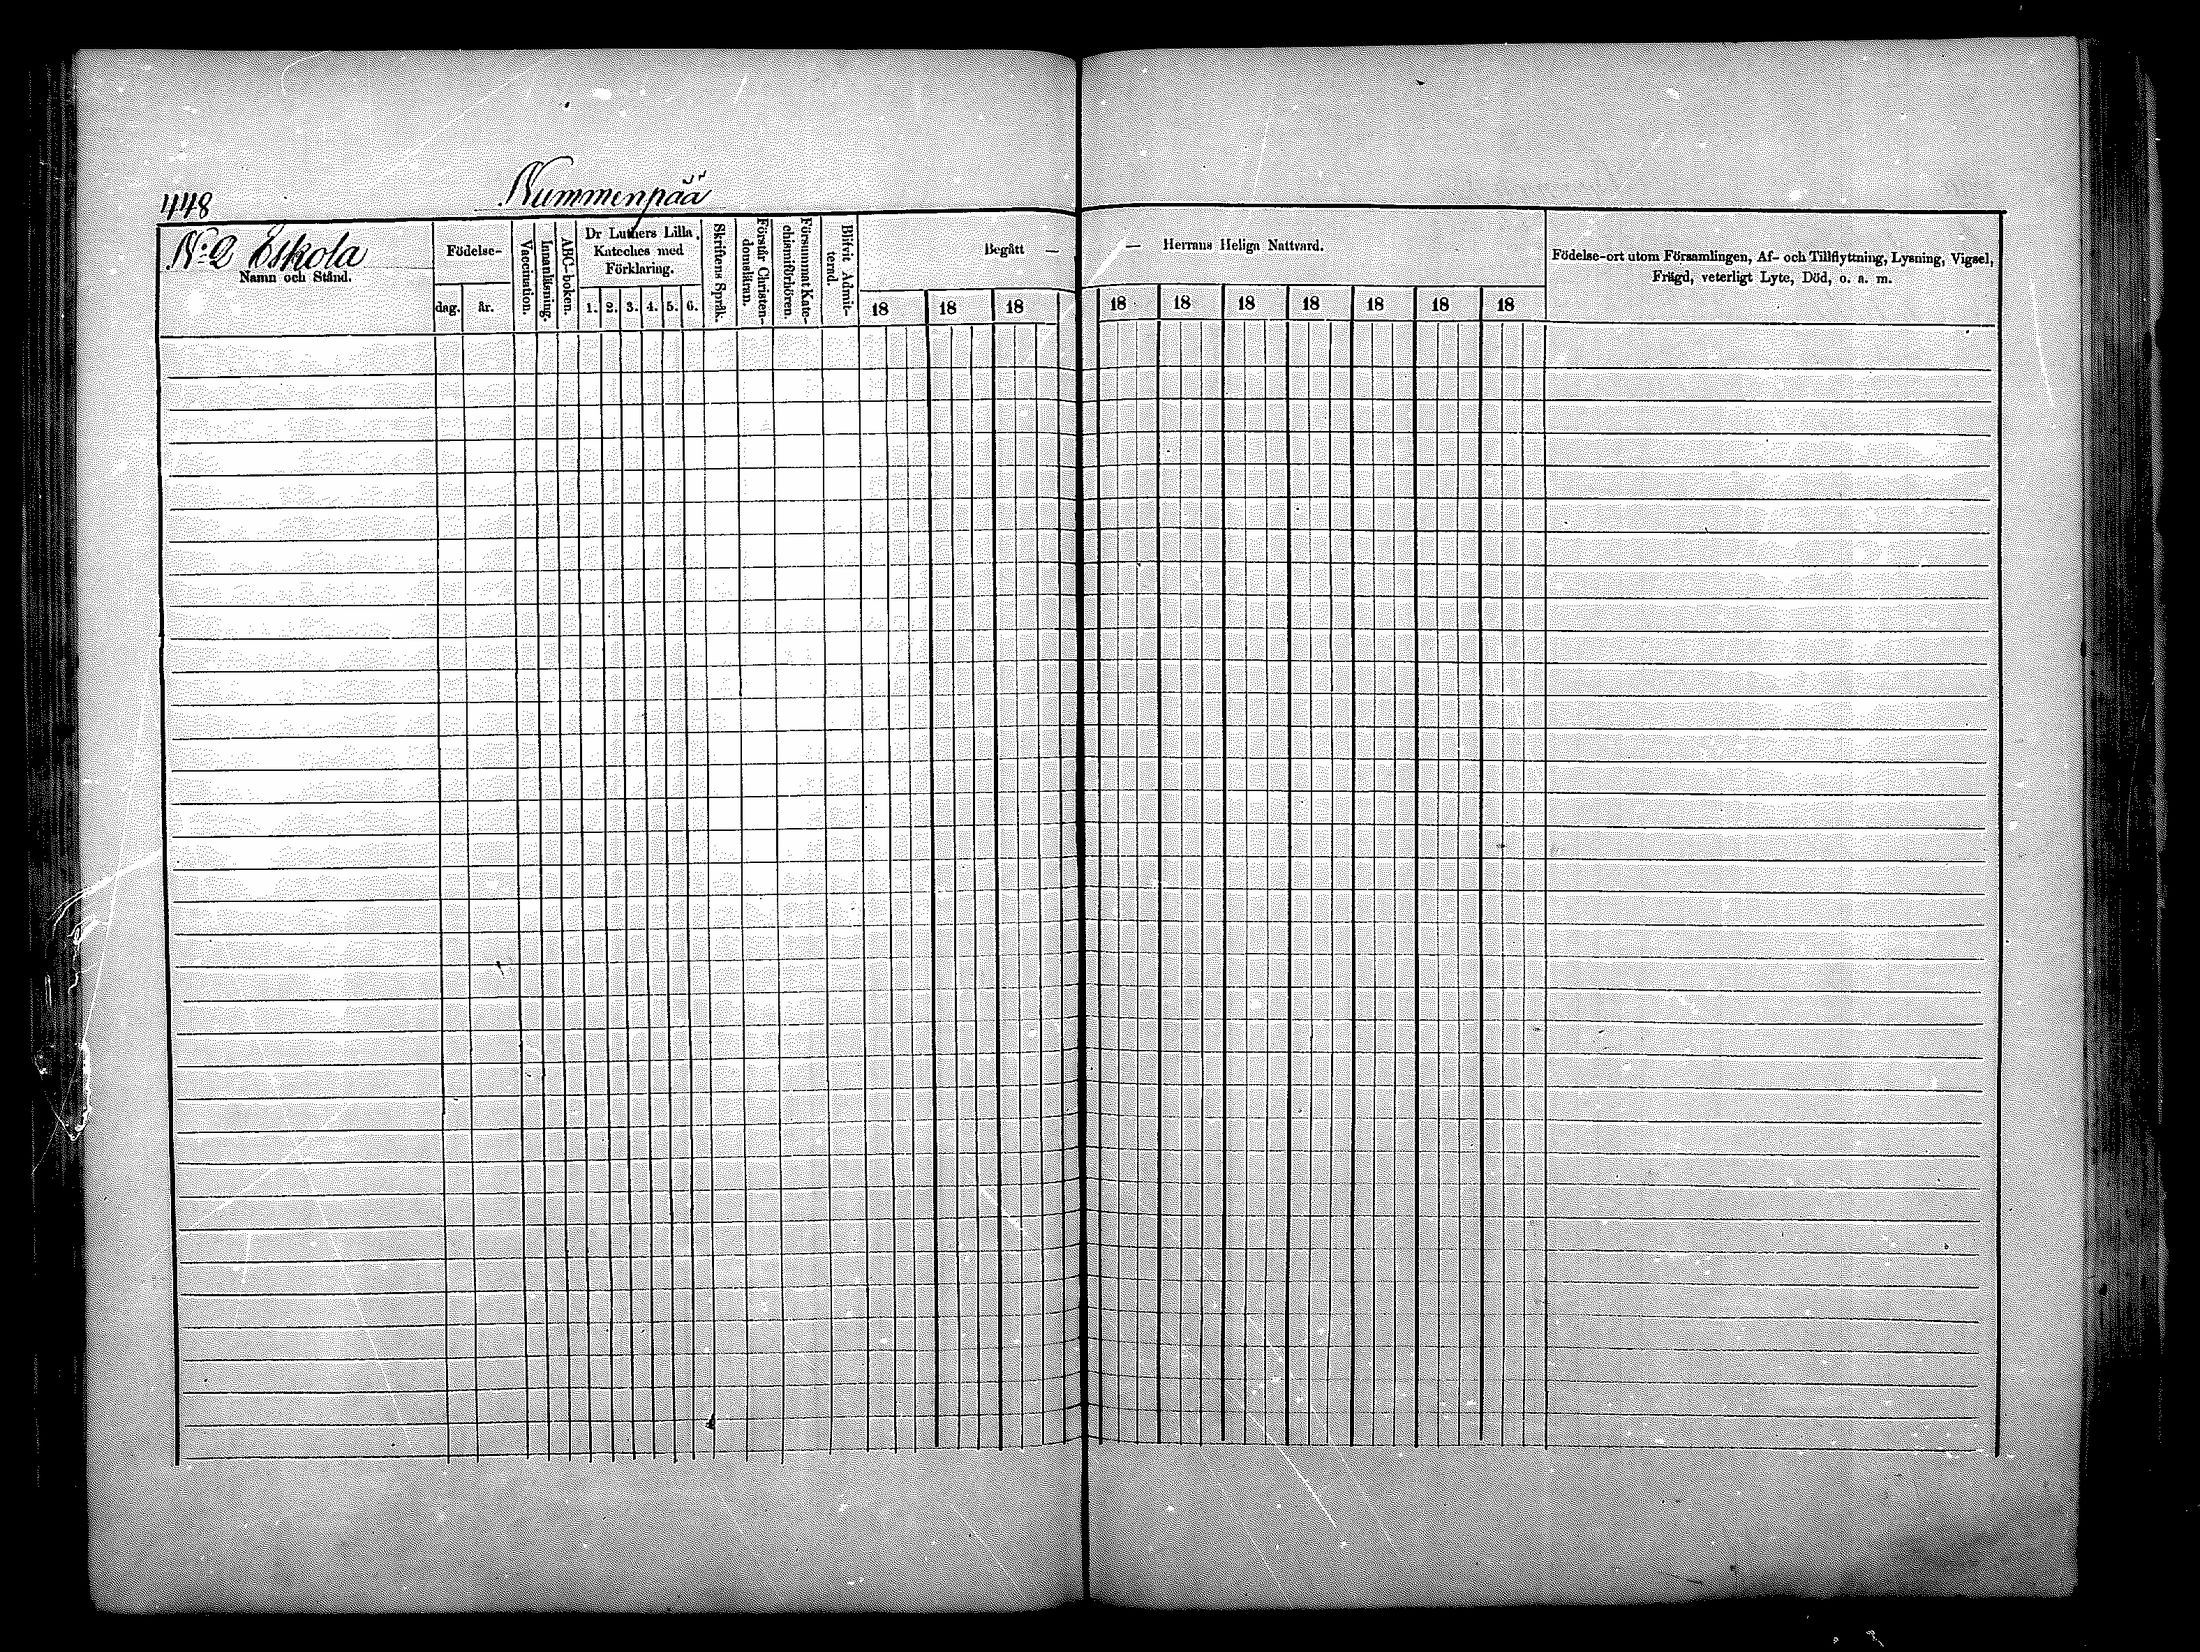 448
Nummenpää
N:2 Eskola
Namn och Stånd.
Födelse-
dag.
år.
Vaccination.
Innanläsning.
ABC-boken.
Dr Luthers Lilla
Kateches med
Förklaring.
1. 2. 3. 4. 5. 6.
Skriftens Språk.
Förstår Christen-
domsläran.
Försummat Kate-
chismiförhören.
Blifvit Admit-
terad.
Begått —
18 18 18
— Herrans Heliga Nattvard.
18 18 18 18 18 18 18
Födelse-ort utom Församlingen, Af- och Tillflyttning, Lysning, Vigsel,
Frägd, veterligt Lyte, Död, o. a. m.